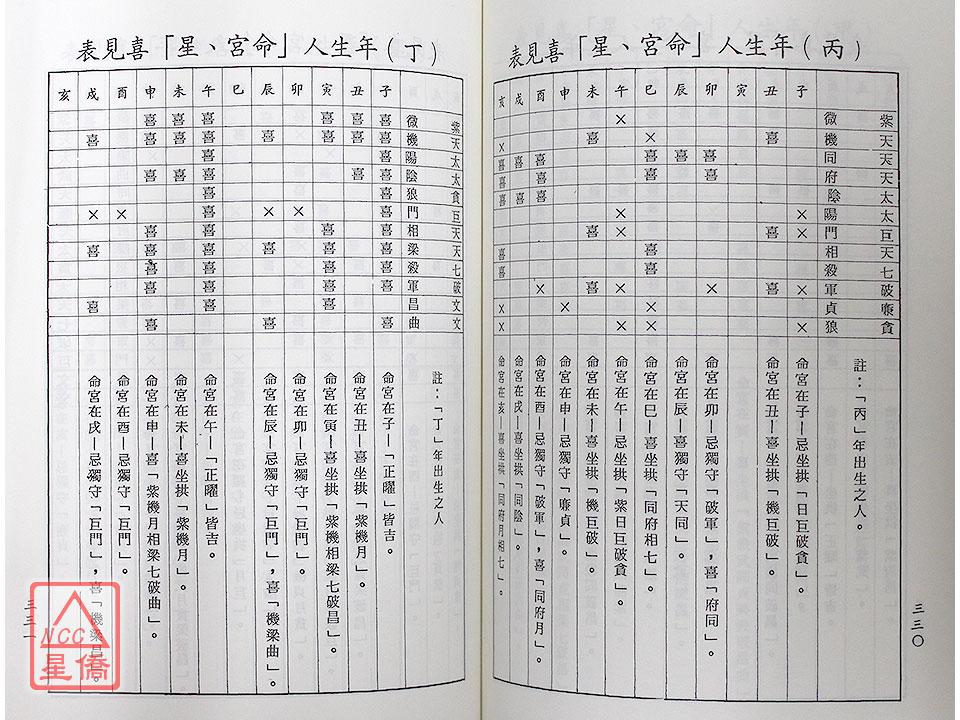 (丙)年生人「命宮、星」喜見表
子 丑 寅 卯 辰 巳 午 未 申 酉 戌 亥
紫微 ×
天機 喜 × 喜 ×
天同 喜 喜 喜 喜 喜 喜
天府 喜 喜 喜 喜
太陰 喜 喜 喜
太陽 × ×
巨門 × 喜 × 喜
天相 喜 喜
七殺 喜 喜
破軍 × 喜 × × 喜 ×
廉貞 × × ×
貪狼 × × × ×
註:「丙」年出生之人。
命宮在子—忌坐拱「日巨破貪」。
命宮在丑—喜坐拱「機巨破」。
命宮在卯—忌獨守「破軍」,喜「府同」。
命宮在辰—喜獨守「天同」。
命宮在巳—喜坐拱「同府相七」。
命宮在午—忌坐拱「紫日巨破貪」。
命宮在未—喜坐拱「機巨破」。
命宮在申—忌獨守「廉貞」。
命宮在酉—忌獨守「破軍」,喜「同府月」。
命宮在戌—喜坐拱「同陰」。
命宮在亥—喜坐拱「同府月相七」。
三三〇
(丁)年生人「命宮、星」喜見表
子 丑 寅 卯 辰 巳 午 未 申 酉 戌 亥
紫微 喜 喜 喜 喜 喜 喜
天機 喜 喜 喜 喜 喜 喜 喜 喜
太陽 喜 喜
太陰 喜 喜 喜 喜 喜
貪狼 喜 喜
巨門 喜 × × 喜 × ×
天相 喜 喜 喜 喜
天梁 喜 喜 喜 喜 喜 喜
七殺 喜 喜 喜 喜
破軍 喜 喜 喜 喜
文昌 喜 喜 喜
文曲 喜 喜 喜
註:「丁」年出生之人
命宮在子—「正曜」皆吉。
命宮在丑—喜坐拱「紫機月」。
命宮在寅—喜坐拱「紫機相梁七破昌」。
命宮在卯—忌獨守「巨門」。
命宮在辰—忌獨守「巨門」,喜「機梁曲」。
命宮在午—「正曜」皆吉。
命宮在未—喜坐拱「紫機月」。
命宮在申—喜「紫機月相梁七破曲」。
命宮在酉—忌獨守「巨門」。
命宮在戌—忌獨守「巨門」,喜「機梁昌」。
三三一
NCC
星僑